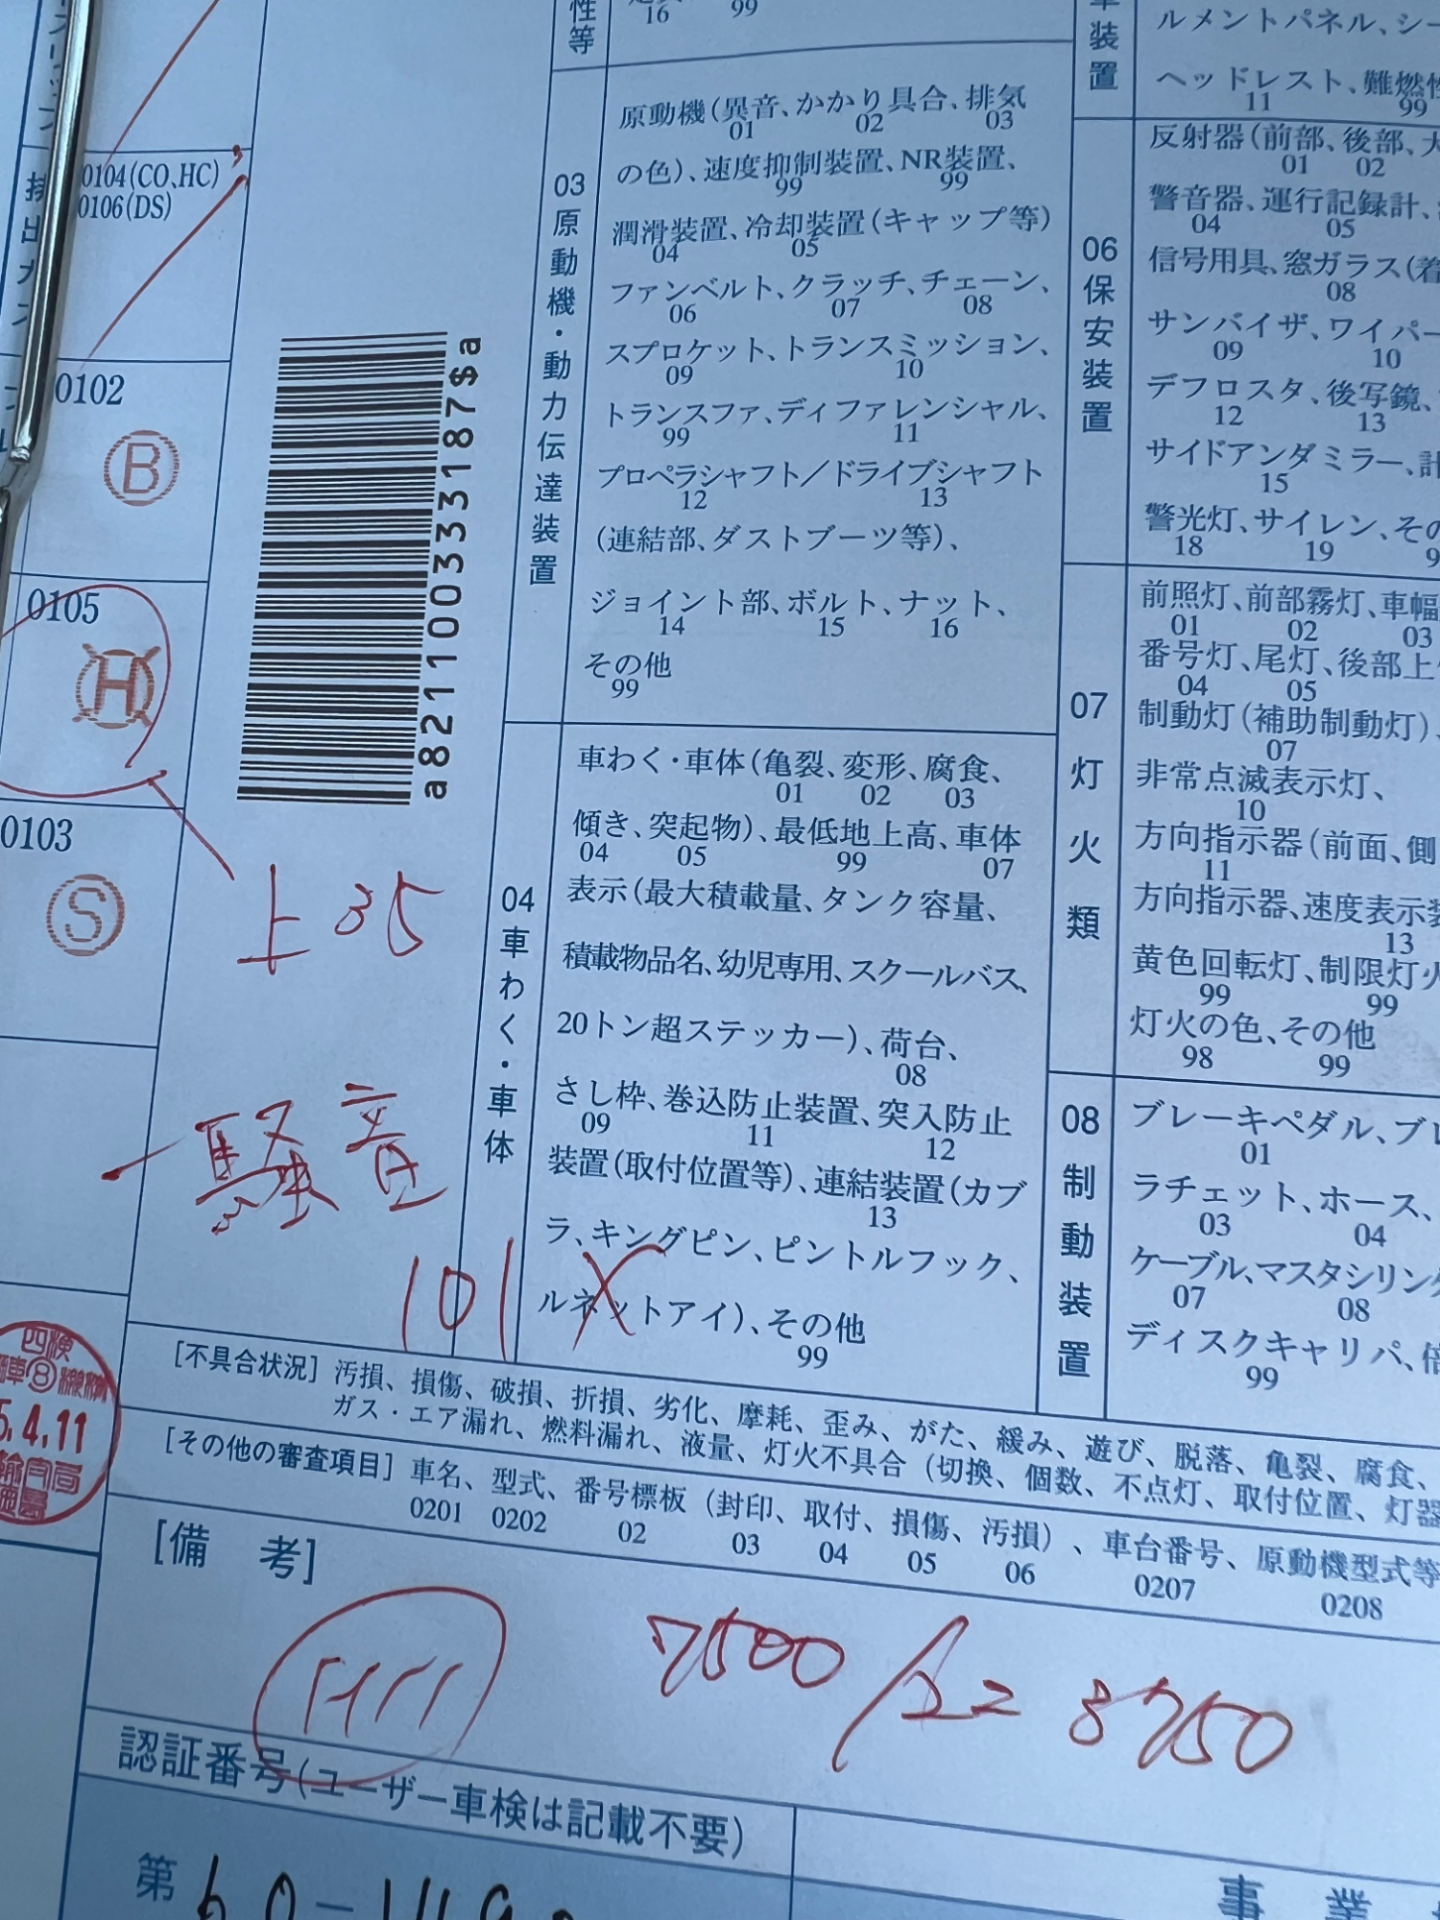 性等
16 99
0104(CO、HC)
0106(DS)
排出ガス
0102
B
0105
H
0103
S
a8211003333187$a
上35
騒音
101 X
03
原動機・動力伝達装置
原動機(異音、かかり具合、排気
01 02 03
の色)、速度抑制装置、NR装置、
99 99
潤滑装置、冷却装置(キャップ等)
04 05
ファンベルト、クラッチ、チェーン、
06 07 08
スプロケット、トランスミッション、
09 10
トランスファ、ディファレンシャル、
99 11
プロペラシャフト/ドライブシャフト
12 13
(連結部、ダストブーツ等)、
ジョイント部、ボルト、ナット、
14 15 16
その他
99
04
車わく・車体
車わく・車体(亀裂、変形、腐食、
01 02 03
傾き、突起物)、最低地上高、車体
04 05 99 07
表示(最大積載量、タンク容量、
積載物品名、幼児専用、スクールバス、
20トン超ステッカー)、荷台、
08
さし枠、巻込防止装置、突入防止
09 11 12
装置(取付位置等)、連結装置(カプ
13
ラ、キングピン、ピントルフック、
ルネットアイ)、その他
99
装置
ルメントパネル、シー
ヘッドレスト、難燃性
11 99
06
保安装置
反射器(前部、後部、大
01 02
警音器、運行記録計、
04 05
信号用具、窓ガラス(着
08
サンバイザ、ワイパー
09 10
デフロスタ、後写鏡、
12 13
サイドアンダミラー、計
15
警光灯、サイレン、その
18 19
07
灯火類
前照灯、前部霧灯、車幅
01 02 03
番号灯、尾灯、後部上
04 05
制動灯(補助制動灯)、
07
非常点滅表示灯、
10
方向指示器(前面、側
11
方向指示器、速度表示装
13
黄色回転灯、制限灯火
99 99
灯火の色、その他
98 99
08
制動装置
ブレーキペダル、ブレ
01
ラチェット、ホース、
03 04
ケーブル、マスタシリンダ
07 08
ディスクキャリパ、倍
99
5.4.11
[不具合状況] 汚損、損傷、破損、折損、劣化、摩耗、歪み、がた、緩み、遊び、脱落、亀裂、腐食、
ガス・エア漏れ、燃料漏れ、液量、灯火不具合(切換、個数、不点灯、取付位置、灯器
[その他の審査項目] 車名、型式、番号標板(封印、取付、損傷、汚損)、車台番号、原動機型式等
0201 0202 02 03 04 05 06 0207 0208
[備考]
7500
8750
認証番号(ユーザー車検は記載不要)
第 60-
事業